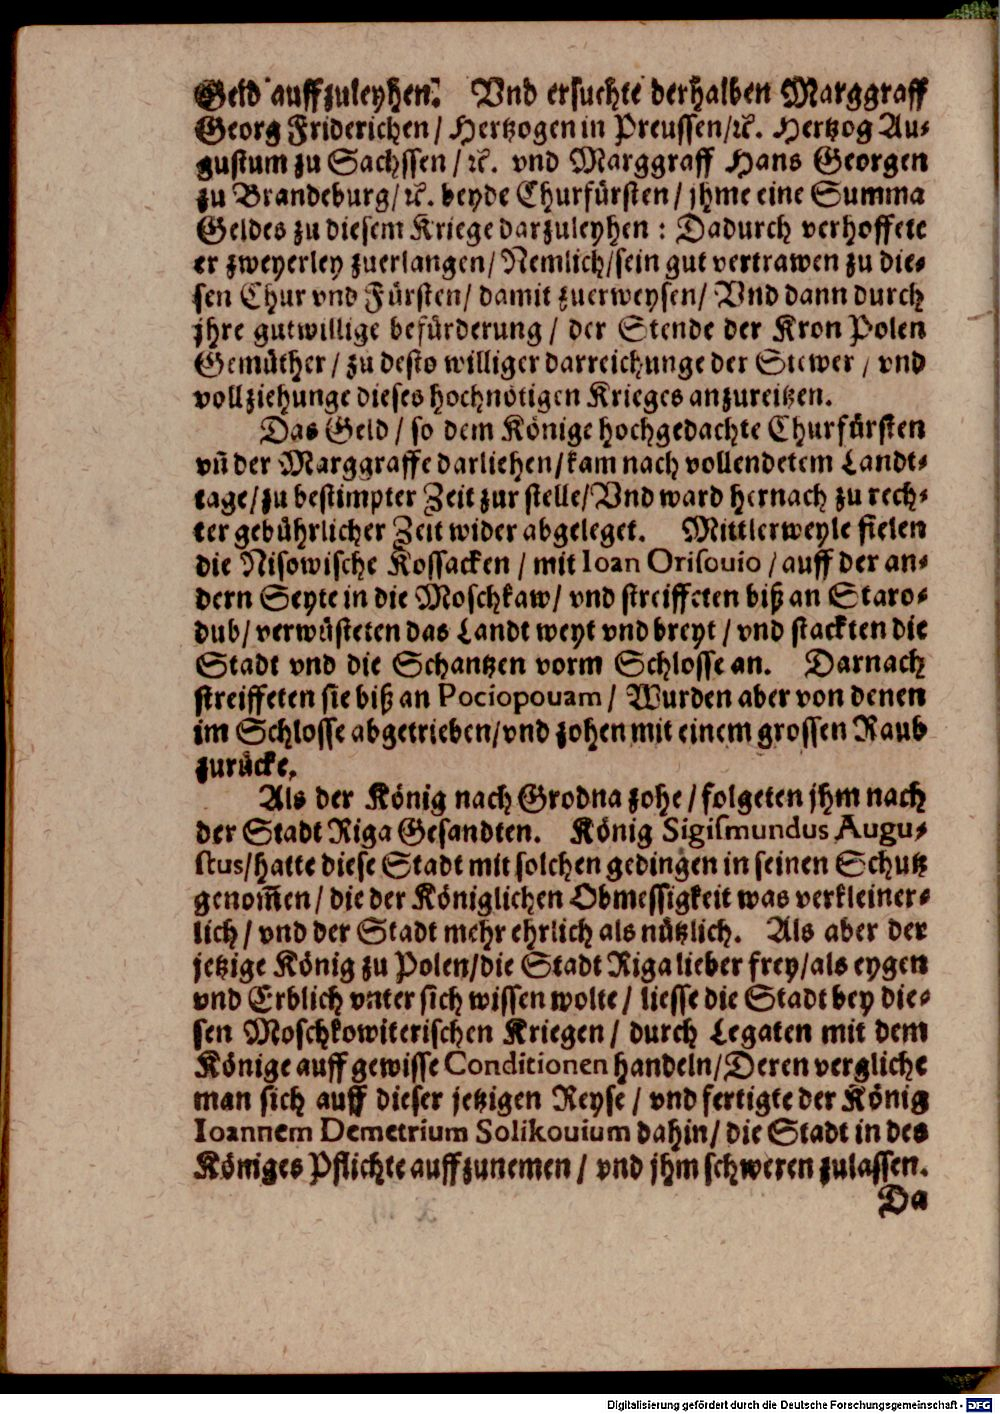 Geld auffzuleyhen. Vnd ersuchte derhalben Marggraff
Georg Friderichen / Hertzogen in Preussen/ꝛc. Hertzog Au⸗
gustum zu Sachssen / ꝛc. vnd Marggraff Hans Georgen
zu Brandeburg/ ꝛc. beyde Churfürsten / jhme eine Summa
Geldes zu diesem Kriege darzuleyhen : Dadurch verhoffete
er zweyerley zuerlangen/ Nemlich/sein gut vertrawen zu die⸗
sen Chur vnd Fürsten/ damit zuerweysen/ Vnd dann durch
jhre gutwillige befürderung / der Stende der Kron Polen
Gemüther / zu desto williger darreichunge der Stewer / vnd
vollziehunge dieses hochnötigen Krieges anzureitzen.
Das Geld / so dem Könige hochgedachte Churfürsten
vñ der Marggraffe darliehen/kam nach vollendetem Landt⸗
tage/zu bestimpter Zeit zur stelle/Vnd ward hernach zu rech⸗
ter gebührlicher Zeit wider abgeleget. Mittlerweyle fielen
die Nisowische Kossacken / mit Ioan Orisouio / auff der an⸗
dern Seyte in die Moschkaw/ vnd streiffeten biß an Staro⸗
dub/ verwüsteten das Landt weyt vnd breyt / vnd stackten die
Stadt vnd die Schantzen vorm Schlosse an. Darnach
streiffeten sie biß an Pociopouam / Wurden aber von denen
im Schlosse abgetrieben/vnd zohen mit einem grossen Raub
zurücke.
Als der König nach Grodna zohe / folgeten jhm nach
der Stadt Riga Gesandten. König Sigismundus Augu⸗
stus/hatte diese Stadt mit solchen gedingen in seinen Schutz
genom̃en / die der Königlichen Obmessigkeit was verkleiner⸗
lich / vnd der Stadt mehr ehrlich als nützlich. Als aber der
jetzige König zu Polen/die Stadt Riga lieber frey/als eygen
vnd Erblich vnter sich wissen wolte / liesse die Stadt bey die⸗
sen Moschkowiterischen Kriegen / durch Legaten mit dem
Könige auff gewisse Conditionen handeln/Deren vergliche
man sich auff dieser jetzigen Reyse / vnd fertigte der König
Ioannem Demetrium Solikouium dahin/ die Stadt in des
Königes Pflichte auffzunemen / vnd jhm schweren zulassen.
Da
Digitalisierung gefördert durch die Deutsche Forschungsgemeinschaft - DFG